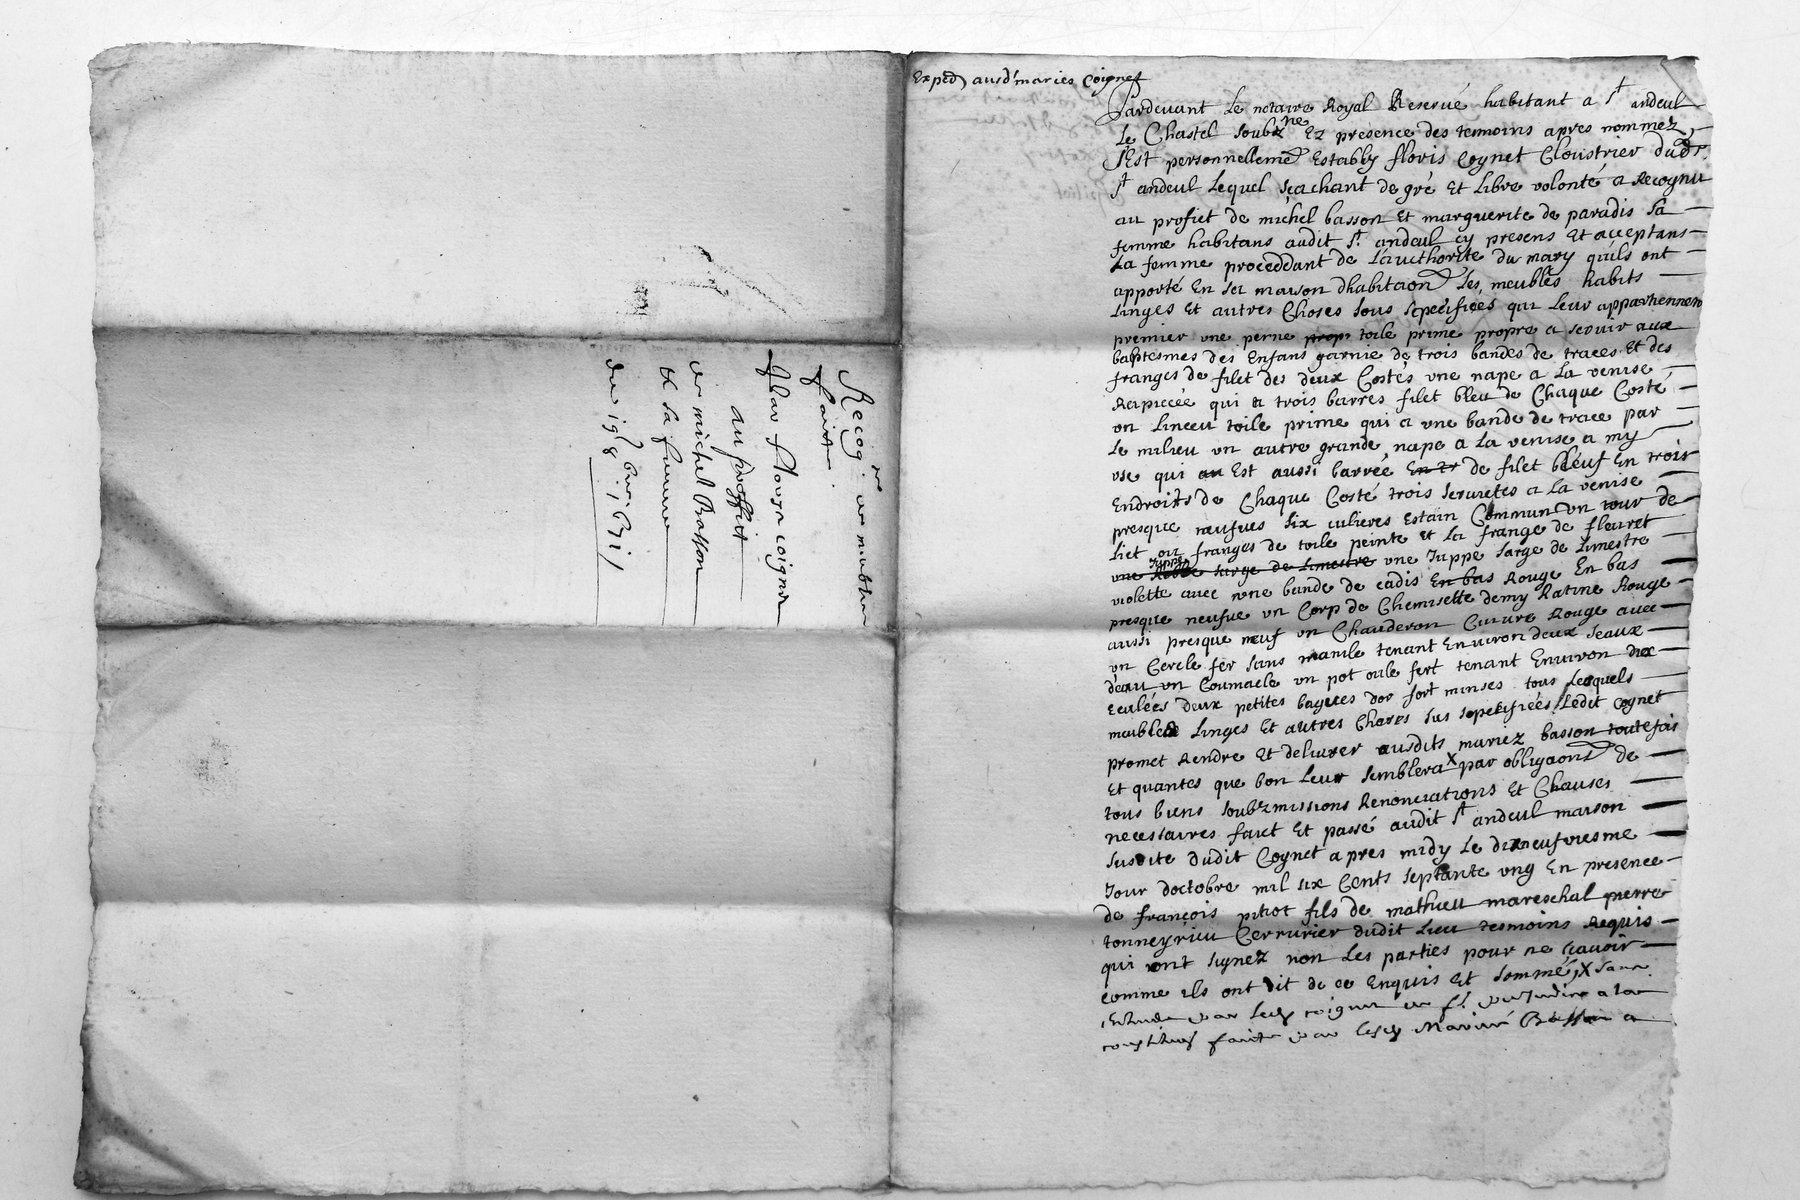 Recog.on de meubles
faite
par floris coignet
au proffict
de michel Basson
et sa femme
du 19e 8bre 1671
Exped ausd maries Coignet
Pardevant Le notaire Royal Reservé habitant a St andeul
Le Chastel soubzne Ez presence des temoins apres nommez
sEst personnelleme Estably floris Cognet Cloustrier dudt
St andeul Lequel sçachant de gré Et Libre volonté a Recognu
au profiet de michel basson Et marguerite de paradis sa
femme habitans audit St andeul cy presens Et acceptans
La femme proceddant de Lauthorite du mary quils ont
apporté En sa maison dhabitaon Les meubles habits
Linges Et autres Choses sous specifiées qui Leur appartiennen
premier une perne prop toile prime propre a servir aux
baptesmes des Enfans garnie de trois bandes de traces Et des
franges de filet des deux Costés une nape a La venise
Rapiecée qui a trois barres filet bleu de Chaque Costé
un Linceu toile prime qui a une bande de trace par
Le milieu un autre grande nape a La venise a my
use qui an Est aussi barrée En tr de filet bleuf En trois
Endroits de Chaque Costé trois serviettes a La venise
presque neufves six culieres Estain Commun un tour de
Liet ou franges de toile peinte Et La frange de fleuret
une Robbe Juppe sarge de Limestre une Juppe sarge de Limestre
violette avec une bande de cadis En bas Rouge En bas
presque neufve un Corp de Chemisette demy Ratine Rouge
aussi presque neuf un Chauderon Cuivre Rouge avec
un Cercle fer sans manile tenant Environ deux seaux
deau un Coumacle un pot oule fert tenant Environ dix
eculées deux petites bagues dor fort minses tous Lesquels
meubles Linges Et autres Choses sus specifiées Ledit Cognet
promet Rendre Et delivrer ausdits mariez basson toutefois
Et quantes que bon Leur semblera x par obligaons de
tous biens soubzmissions Renonciations Et Clauses
necessaires faict Et passé audit St andeul maison
susdite dudit Cognet apres midy Le dixneufviesme
Jour doctobre mil six Cents septante ung En presence
de françois pitiot fils de mathieu mareschal pierre
tonneyrieu Cerrurier dudit Lieu tesmoins Requis
qui ont signez non Les parties pour ne sçavoir
comme ils ont dit de ce Enquis Et sommé x sans
par Led coignet prejudice a la
faite par lesd Mariés Basson a